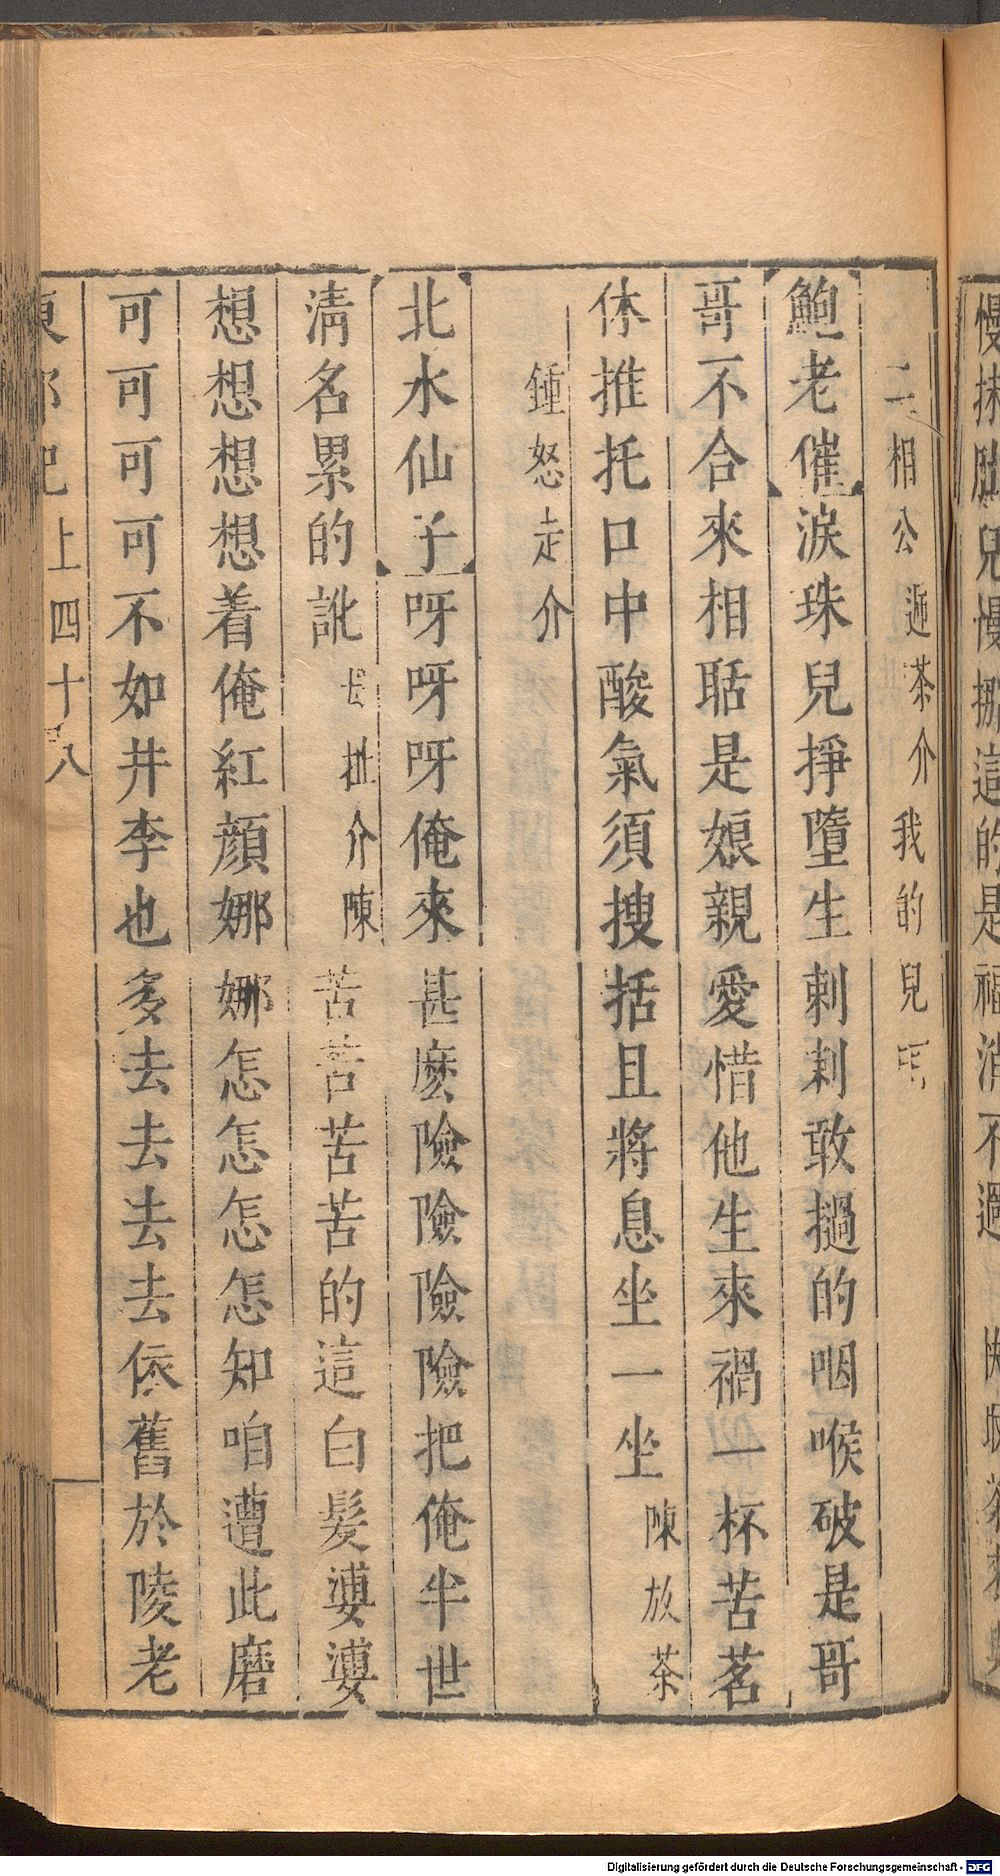 慢抹
兒慢挪這的是福消不過
二相公 遞茶介 我的兒
鮑老催 淚珠兒掙墮生剌剌敢撾的咽喉破是哥
哥不合來相聒是娘親愛惜他生來禍一杯苦茗
休推托口中酸氣須搜括且將息坐一坐 陳放茶
鍾怒走介
北水仙子 呀呀呀俺來甚麽險險險險把俺半世
淸名累的訛 扯介陳 苦苦苦苦的這白髮婆婆
想想想想着俺紅顔娜娜怎怎怎怎知咱遭此磨
可可可可不如井李也多去去去去依舊於陵老
東郭記 上 四十八
Digitalisierung gefördert durch die Deutsche Forschungsgemeinschaft - DFG